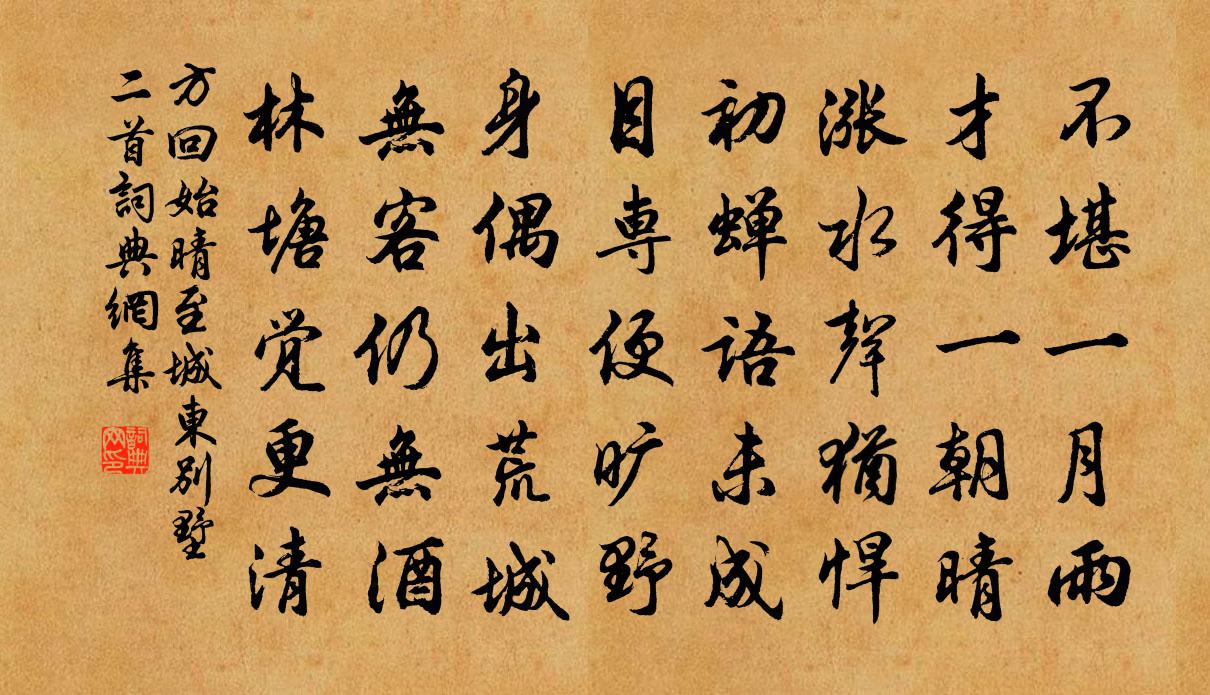 不堪一月雨
才得一朝晴
漲水聲猶悍
初蝉語未成
目専便旷野
身偶出荒城
無客仍無酒
林塘覚更清
方回始晴至城東別墅
二首詞典網集
詞典
网印